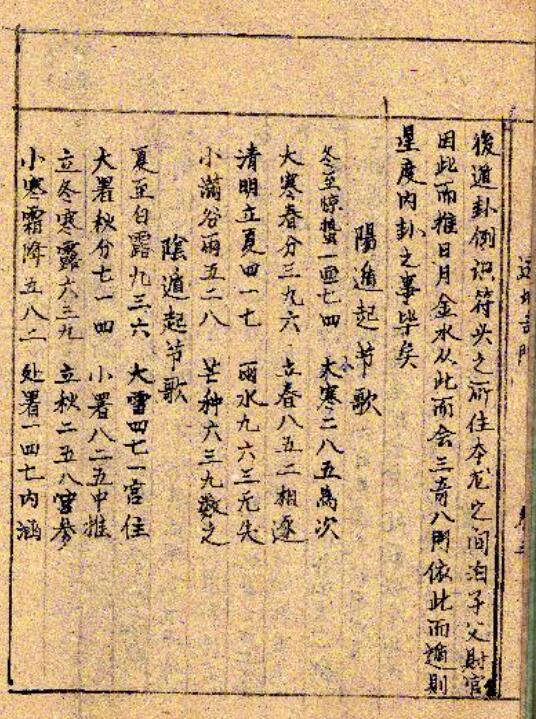 後遁卦例识符头之所住本龙之间泊子父財官
因此而推日月金水从此而会三奇八門依此而遁則
星度内卦之事毕矣
陽遁起节歌
冬至惊蛰一七四 大寒二八五為次
大寒春分三九六 立春八五二相逐
清明立夏四一七 雨水九六三元失
小满谷雨五二八 芒种六三九数之
陰遁起节歌
夏至白露九三六 大雪四七一宫住
大署秋分七一四 小署八二五中推
立冬寒露六三九 立秋二五八宫参
小寒霜降五八二 处署一四七内涵